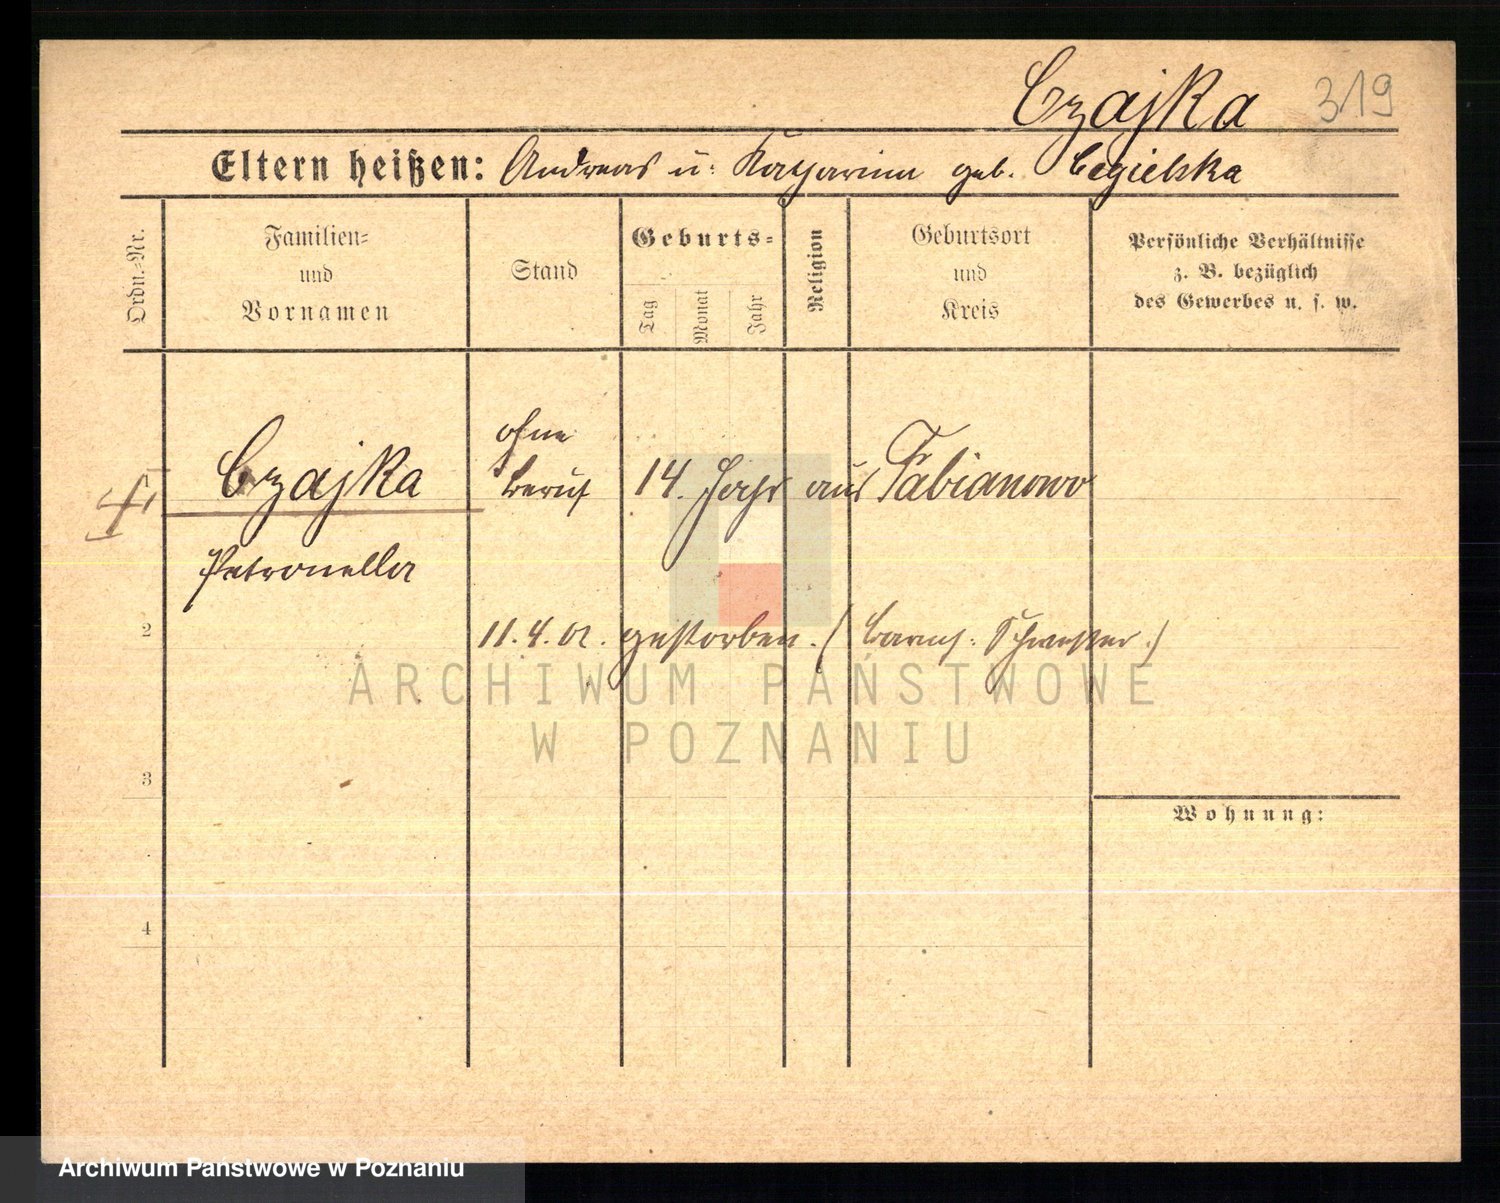 Czajka 319
Eltern heißen: Andreas u. Katharina geb. Cegielska
Ordn.-Nr.
Familien-
und
Vornamen
Stand
Geburts-
Tag
Monat
Jahr
Religion
Geburtsort
und
Kreis
Persönliche Verhältnisse
z. B. bezüglich
des Gewerbes u. s. w.
ohne
Czajka Beruf 14. Jahr aus Fabianowo
Petronella
2 11. 4. 01. gestorben. (Barmh. Schwester.)
ARCHIWUM PAŃSTWOWE
W POZNANIU
3
Wohnung:
4
Archiwum Państwowe w Poznaniu